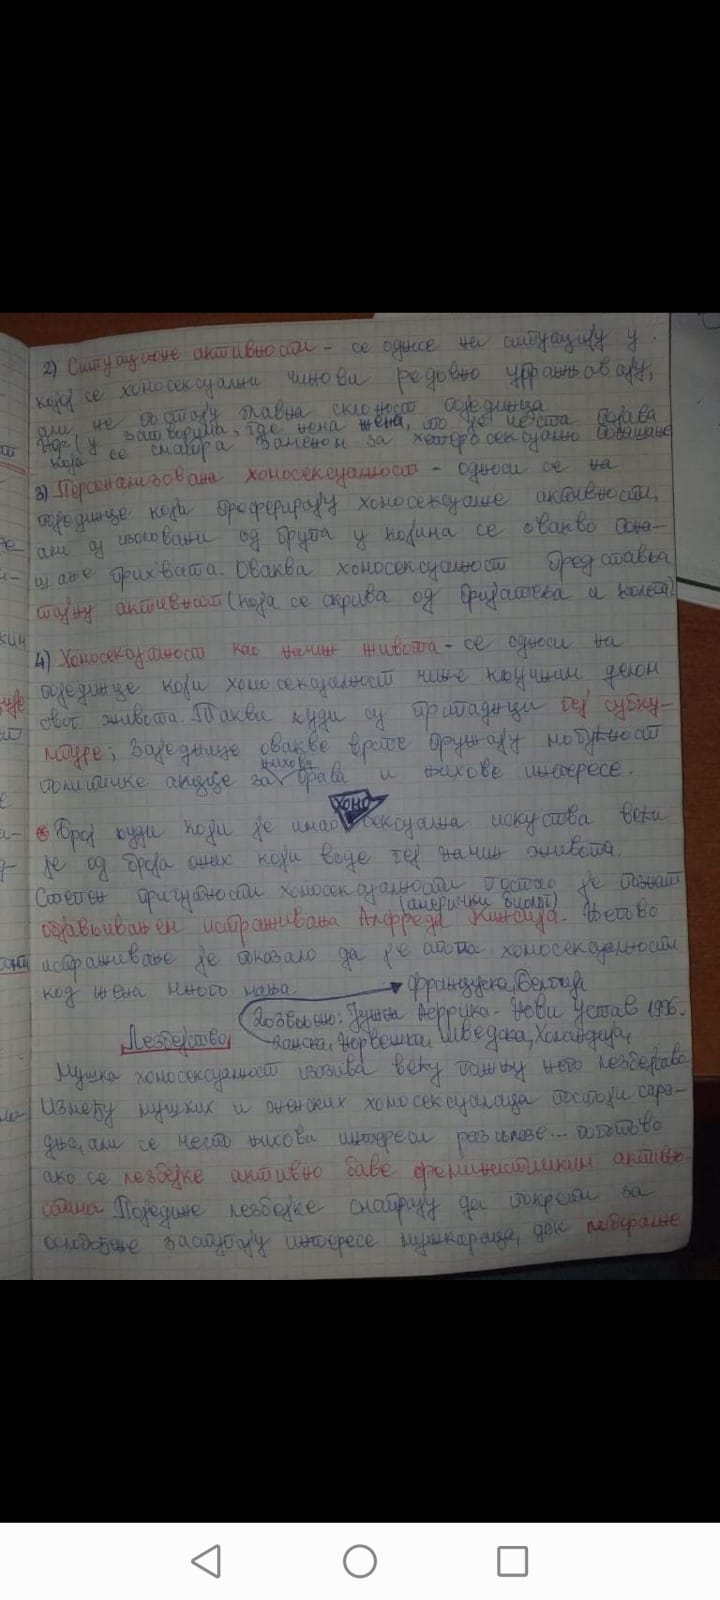 2) Ситуационе активности – се односе на ситуацију у
којој се хомосексуални чинови редовно упражњавају,
али не постају главна склоност појединца
Нпр (у затворима, где нема жена, то је честа појава
која се сматра заменом за хетеросексуално понашање
3) Персонализована хомосексуалност – односи се на
појединце који преферирају хомосексуалне активности,
али су изоловани од група у којима се овакво пона-
шање прихвата. Оваква хомосексуалност представља
тајну активност (која се скрива од пријатеља и колега)
4) Хомосексуалност као начин живота – се односи на
појединце који хомосексуалност чине кључним делом
свог живота. Такви људи су припадници геј субкул-
туре; Заједнице овакве врсте пружају могућност
политичке акције за њихова права и њихове интересе.
хомо
Број људи који је имао сексуална искуства већи
је од броја оних који воде геј начин живота.
Степен присутности хомосексуалности постао је познат
(амерички биолог)
објављивањем истраживања Алфреда Кинсија. Његово
истраживање је показало да је стопа хомосексуалности
код жена много мања.
Француска, Белгија
Дозвољено: Јужна Африка – Нови Устав 1996.
Лезбејство
Данска, Норвешка, Шведска, Холандија,
Мушка хомосексуалност изазива већу пажњу него лезбејство.
Између мушких и женских хомосексуалаца постоји сара-
дња, али се често њихови интереси разилазе... поготово
ако се лезбејке активно баве феминистичким активно-
стима. Поједине лезбејке сматрају да покрети за
ослобођење заступају интересе мушкараца, док либералне